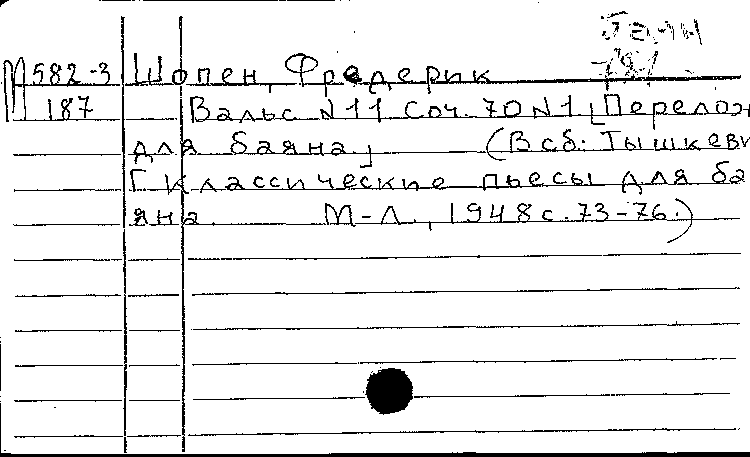 М582-3 Шопен, Фредерик
187 Вальс N11 Соч. 70 N1 [Перелож
для баяна] (В сб: Тышкеви
Г Классические пьесы для ба
яна. М-Л., 1948 с. 73-76.)